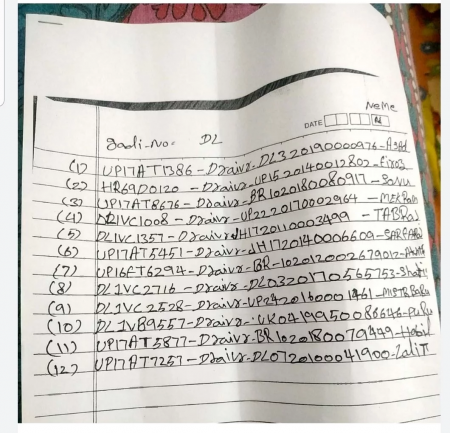 NeMe
DATE
gadi-No= DL
(1) UP17AT1386-Draivr-DL320190000976-Asad
(2) HR69D0120-Draivr-UP1520140012802-firoz
(3) UP17AT8676-Draivr-BR1020180080917-Sonu
(4) DL1VC1008-Draivr-UP2220170002964-
(5) DL1VC1357-Draivr JH1720110003499-TABRaJ
(6) UP17AT5451-Draivr-JH1720140006609-SARFARAJ
(7) UP16FT6294-Draivr-BR-10201200267901?-
(8) DL1VC2716-Draivr-DL0320170565753-
(9) DL1VC2528-Draivr-UP2420160001461-
(10) DL1VB9557-Draivr-UK0419950086646-
(11) UP17AT5877-Draivr-BR1020180079449-Habil
(12) UP17AT7257-Draivr-DL0720100041900-LaliT